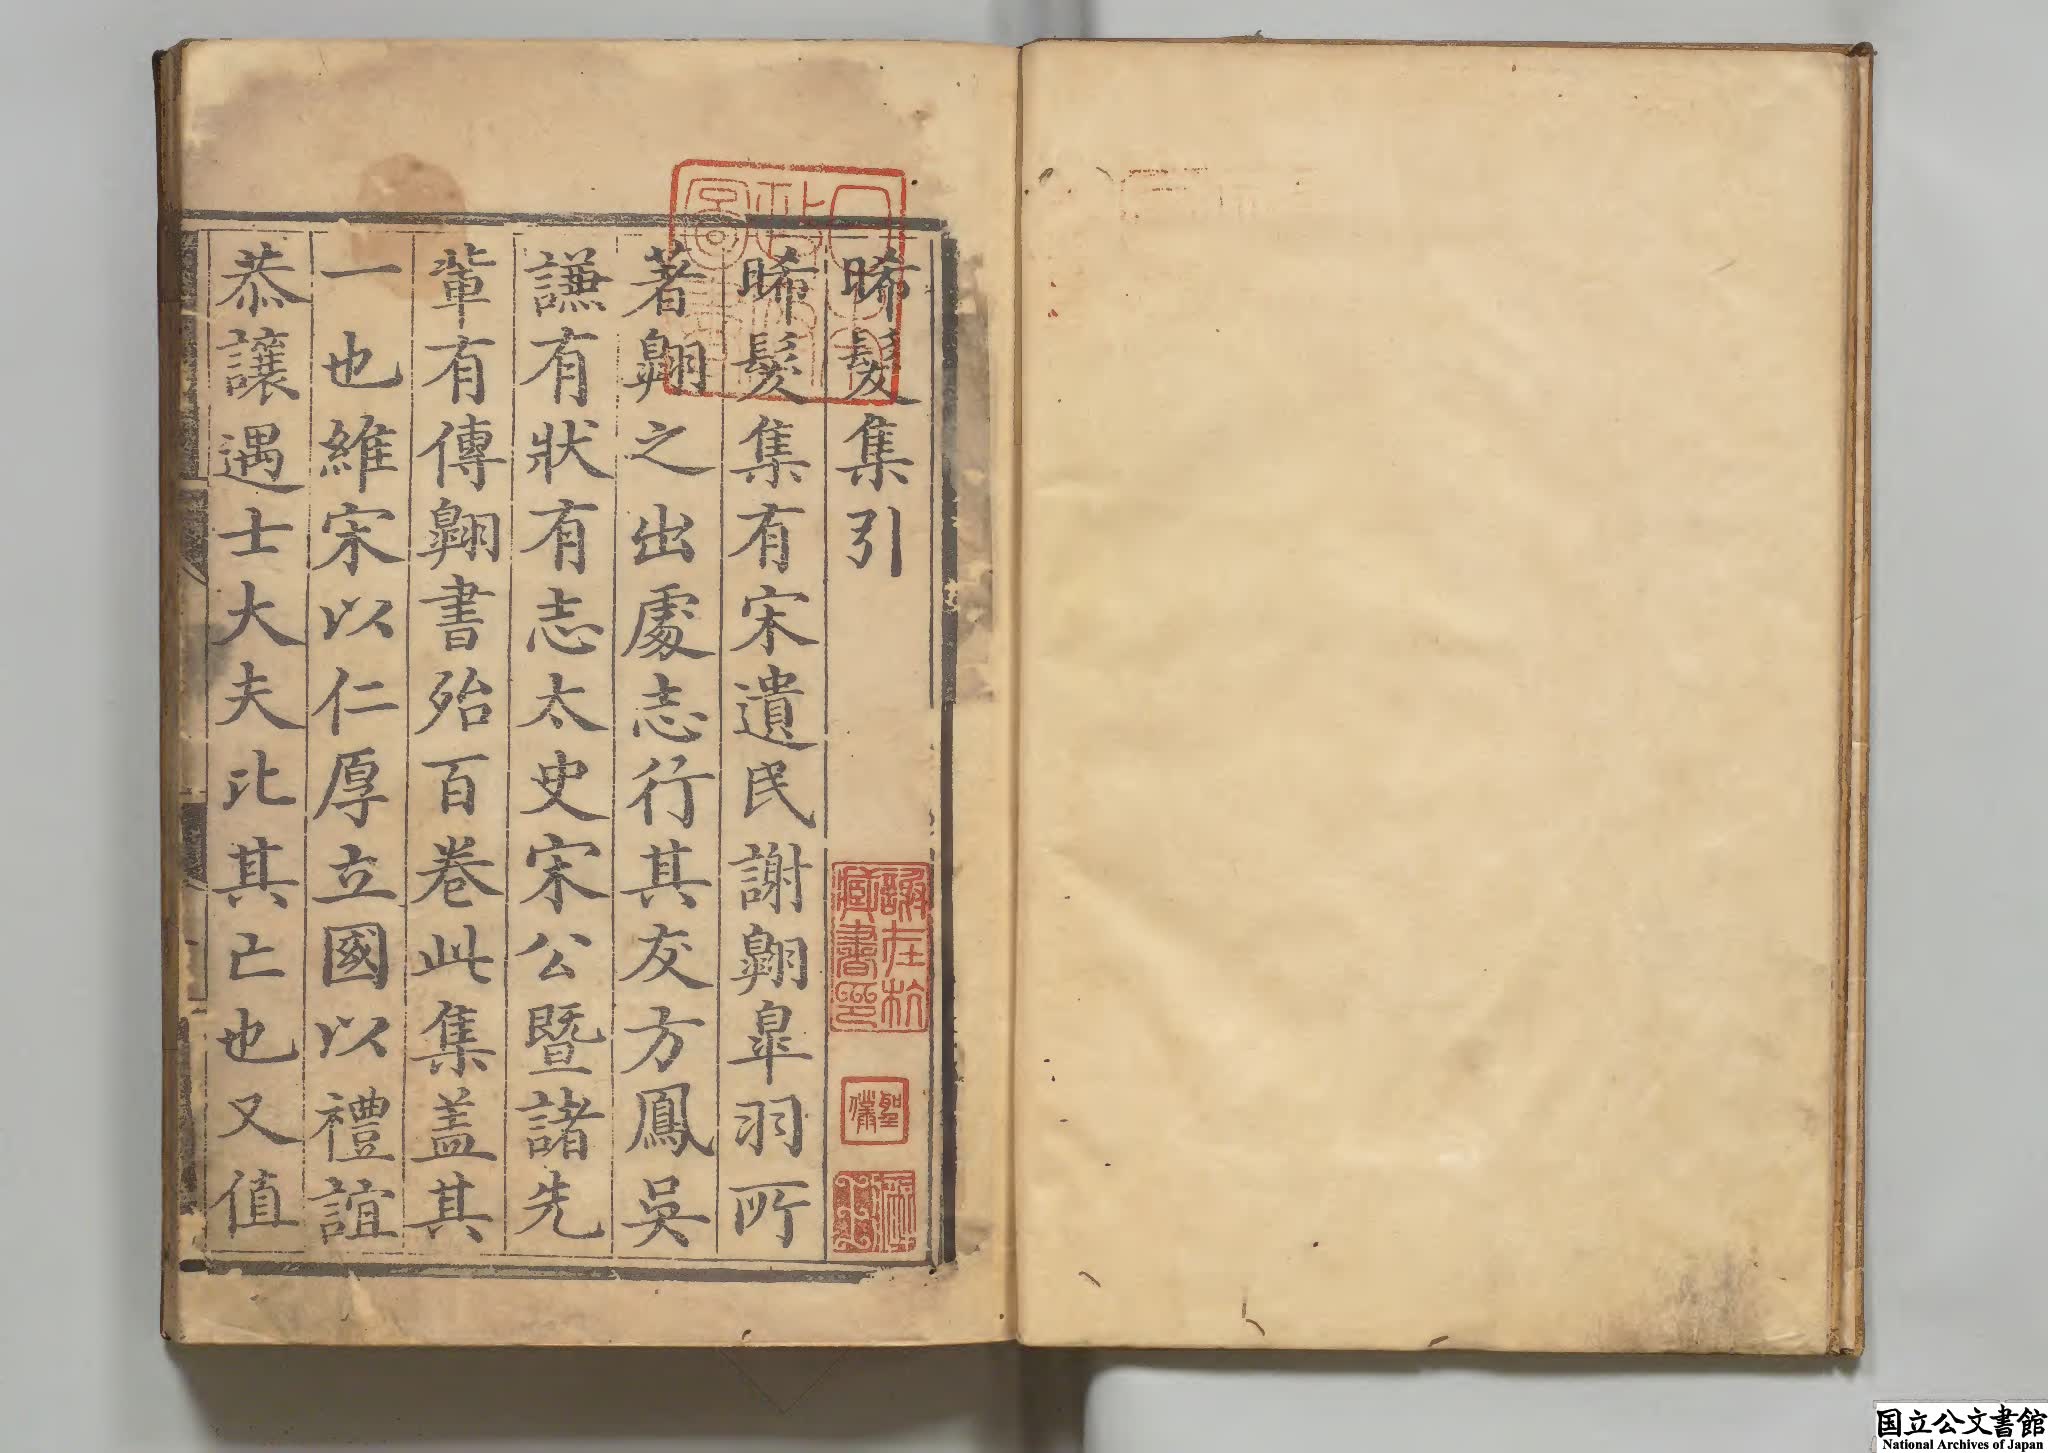 晞髮集引
晞髮集有宋遺民謝翺皐羽所
著翺之出處志行其友方鳳吳
謙有狀有志太史宋公暨諸先
輩有傳翺書殆百卷此集盖其
一也維宋以仁厚立國以禮誼
恭讓遇士大夫比其亡也又值
謝在杭
藏書印
国立公文書館
National Archives of Japan